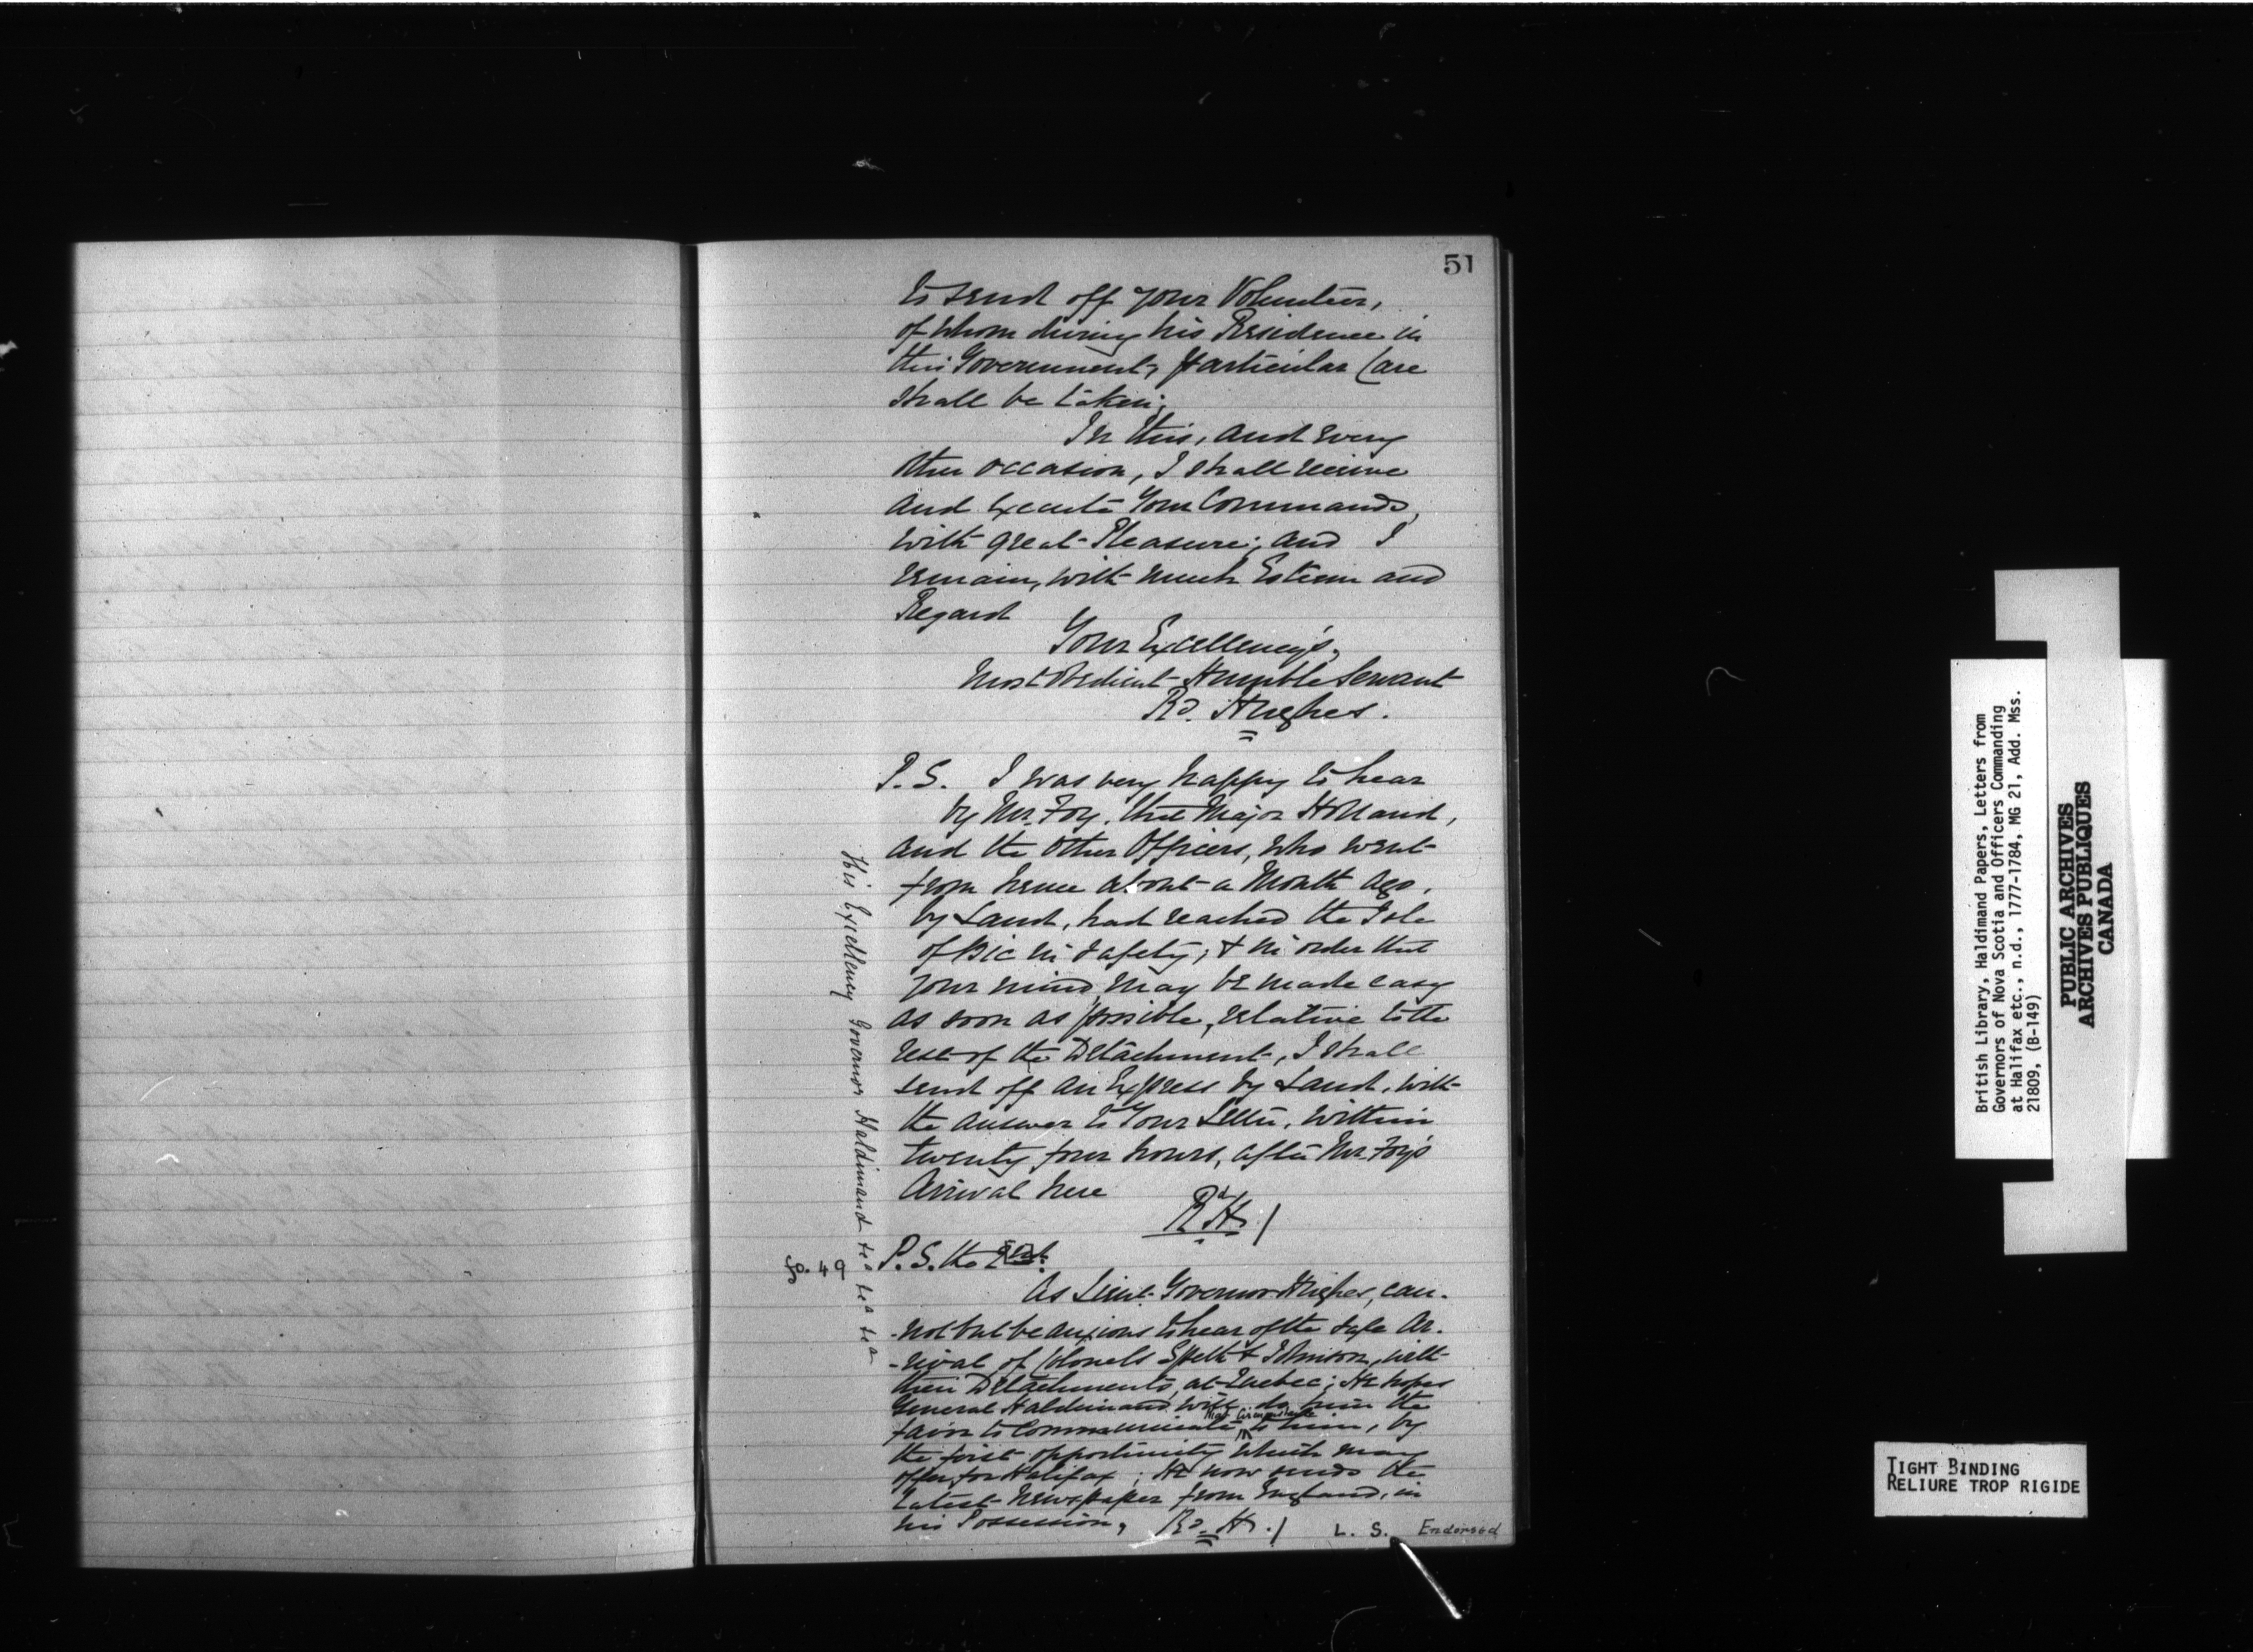 51
to send off your Volunteer,
of whom during his Residence in
this Government, particular Care
shall be taken;
In this, and every
other occasion, I shall receive
and Execute Your Commands,
with great Pleasure; and I
remain, with much Esteem and
Regard
Your Excellency's,
Most Obedient Humble Servant
Rd. Hughes.
P.S. I was very happy to hear
by Mr. Foy, that Major Holland,
and the other Officers, who went
from hence about a Month ago,
by Land, had reached the Isle
of Bic in safety; & in order that
your mind may be made easy
as soon as possible, relative to the
rest of the Detachment, I shall
send off an Express by Land, with
the answer to Your Letter, within
twenty four hours, after Mr. Foy's
Arrival here
Rd H./
His Excellency Governor Haldimand &ca &ca &ca
fo. 49
P.S. the
As Lieut. Governor Hughes, can-
-not but be anxious to hear of the safe Ar-
-rival of Colonels Speth & Johnson, with
their Detachments, at Quebec; He hopes
General Haldimand will do him the
favor to Communicate that Circumstance to him, by
the first opportunity which may
offer, for Halifax; He now sends the
Latest Newspaper from England, in
his Possession, Rd. H./
L. S. Endorsed
British Library, Haldimand Papers, Letters from
Governors of Nova Scotia and Officers Commanding
at Halifax etc., n.d., 1777-1784, MG 21, Add. Mss.
21809, (B-149)
PUBLIC ARCHIVES
ARCHIVES PUBLIQUES
CANADA
TIGHT BINDING
RELIURE TROP RIGIDE